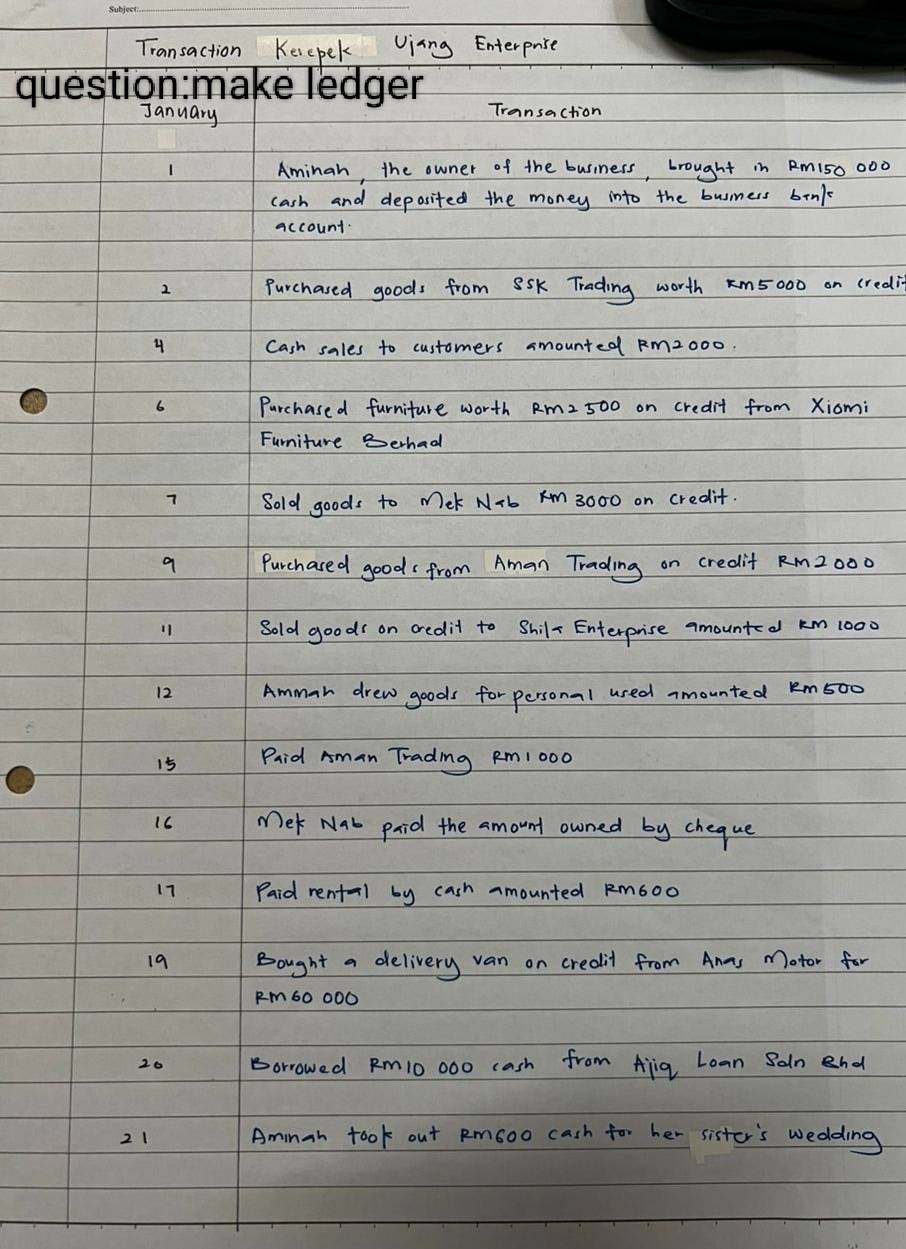 Subject:
Transaction Kerepek Ujang Enterprise
question:make ledger
January Transaction
1 Aminah, the owner of the business, brought in RM150 000
cash and deposited the money into the business bank
account.
2 Purchased goods from SSK Trading worth RM5000 on credit
4 Cash sales to customers amounted RM2000.
6 Purchased furniture worth RM2500 on credit from Xiomi
Furniture Berhad
7 Sold goods to Mek Nab RM 3000 on credit.
9 Purchased goods from Aman Trading on credit RM2000
11 Sold goods on credit to Shila Enterprise amounted RM 1000
12 Aminah drew goods for personal used amounted RM500
15 Paid Aman Trading RM1000
16 Mek Nab paid the amount owned by cheque
17 Paid rental by cash amounted RM600
19 Bought a delivery van on credit from Anas Motor for
RM60 000
20 Borrowed RM10 000 cash from Ajiq Loan Sdn Bhd
21 Aminah took out RM600 cash for her sister's wedding